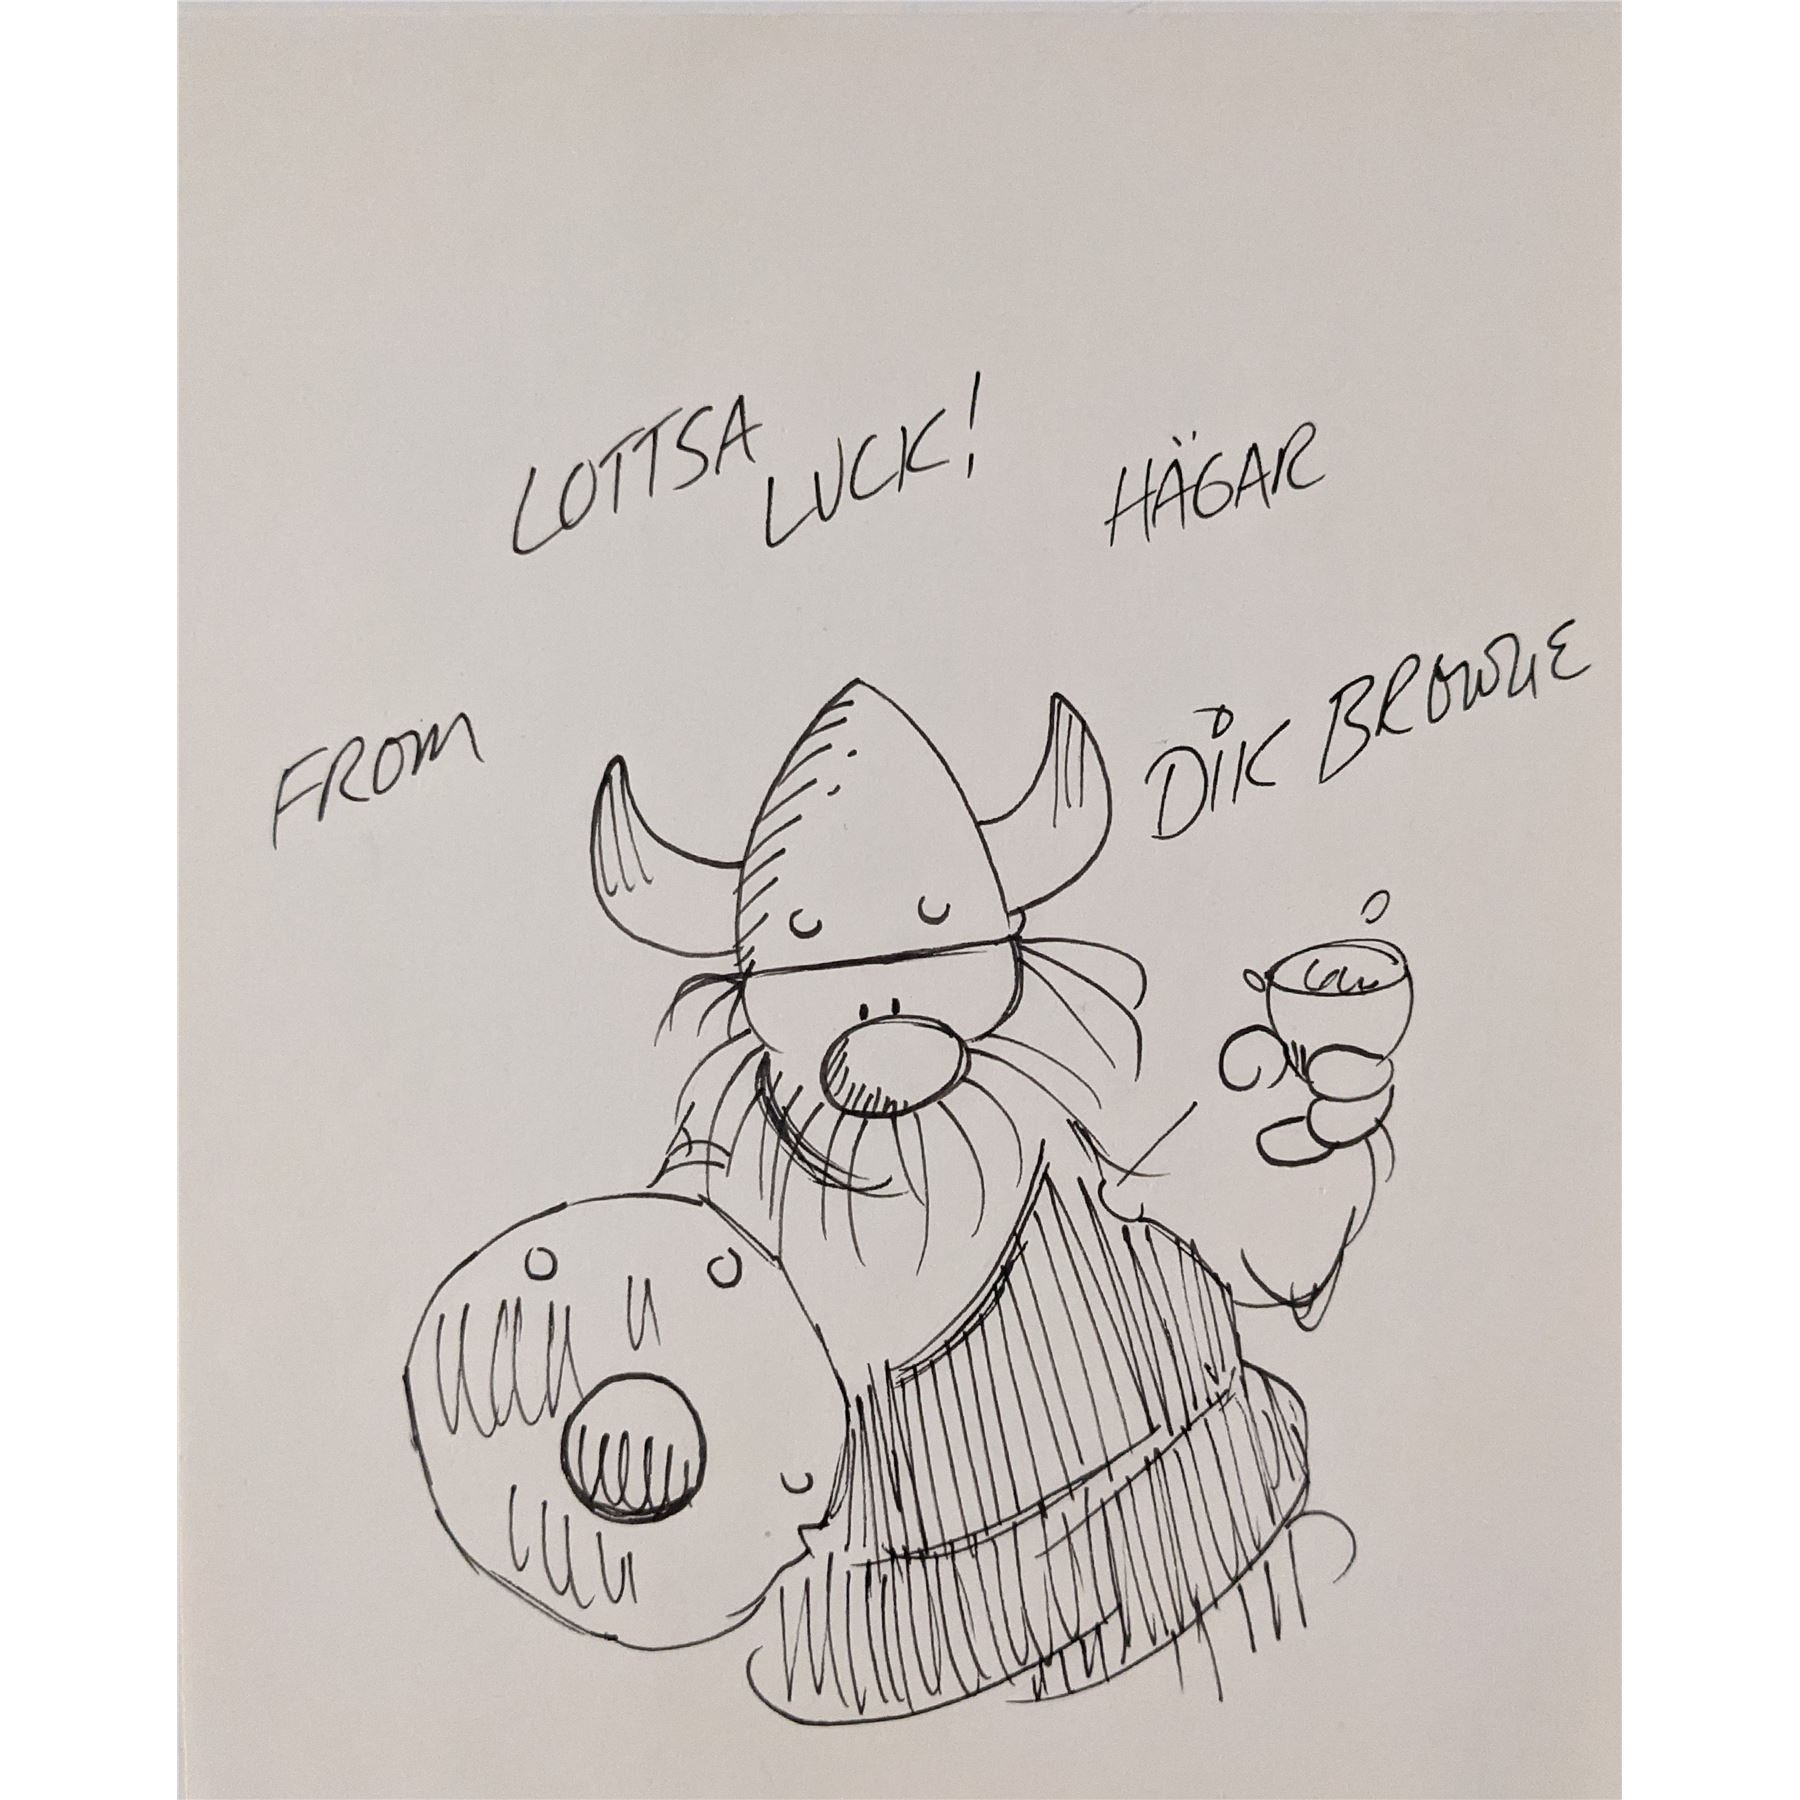 LOTTSA LUCK! HÄGAR
FROM DIK BROWNE